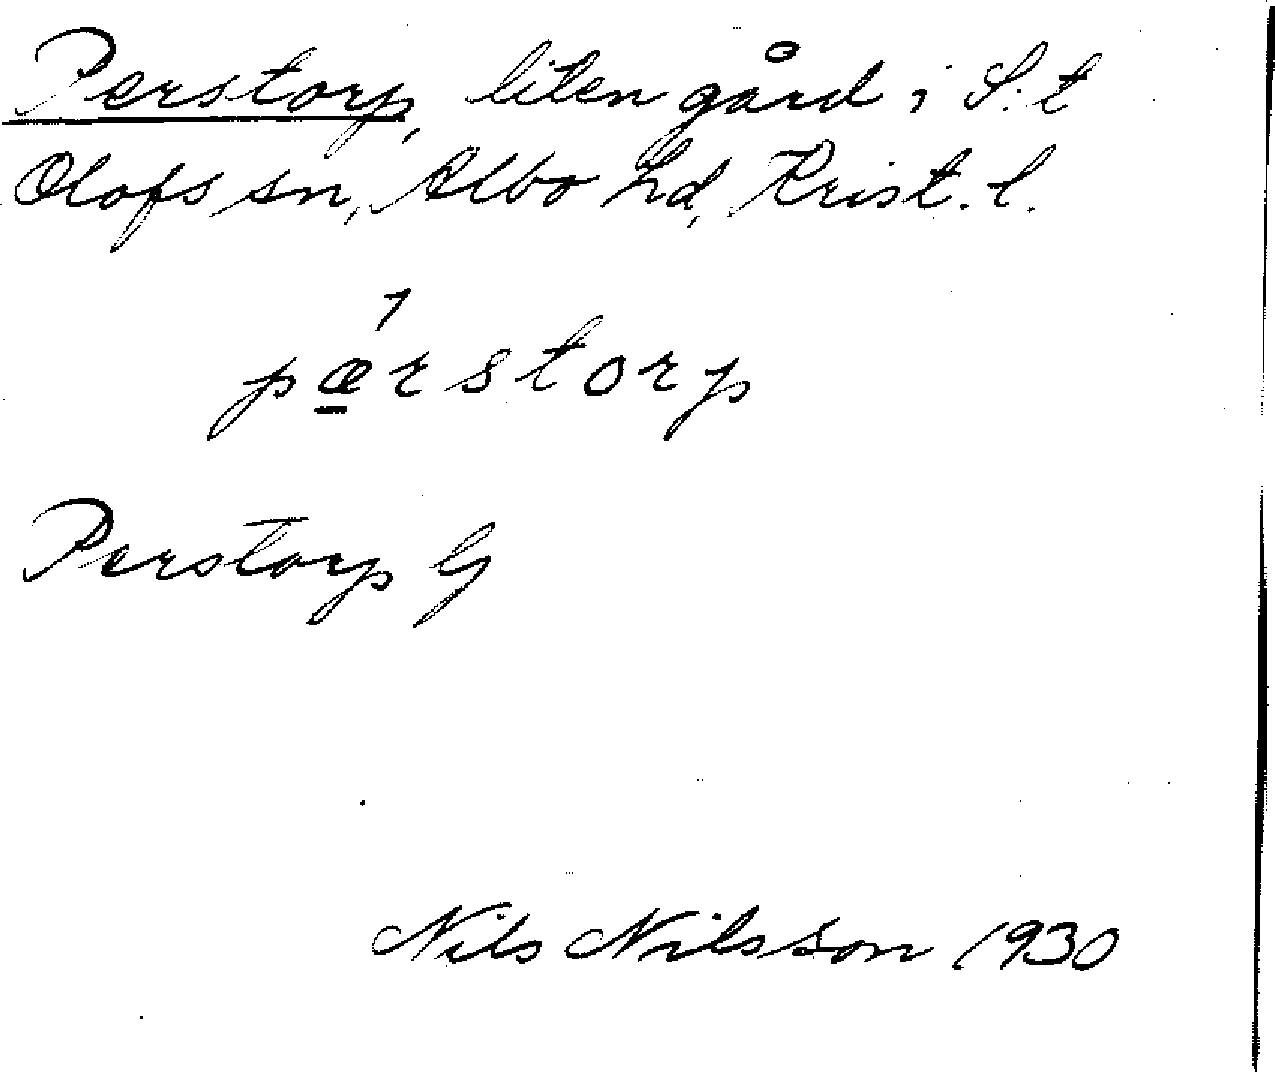 Perstorp, liten gård i S:t
Olofs sn, Albo hd, Krist. l.
1
pærstorp
Perstorp G
Nils Nilsson 1930